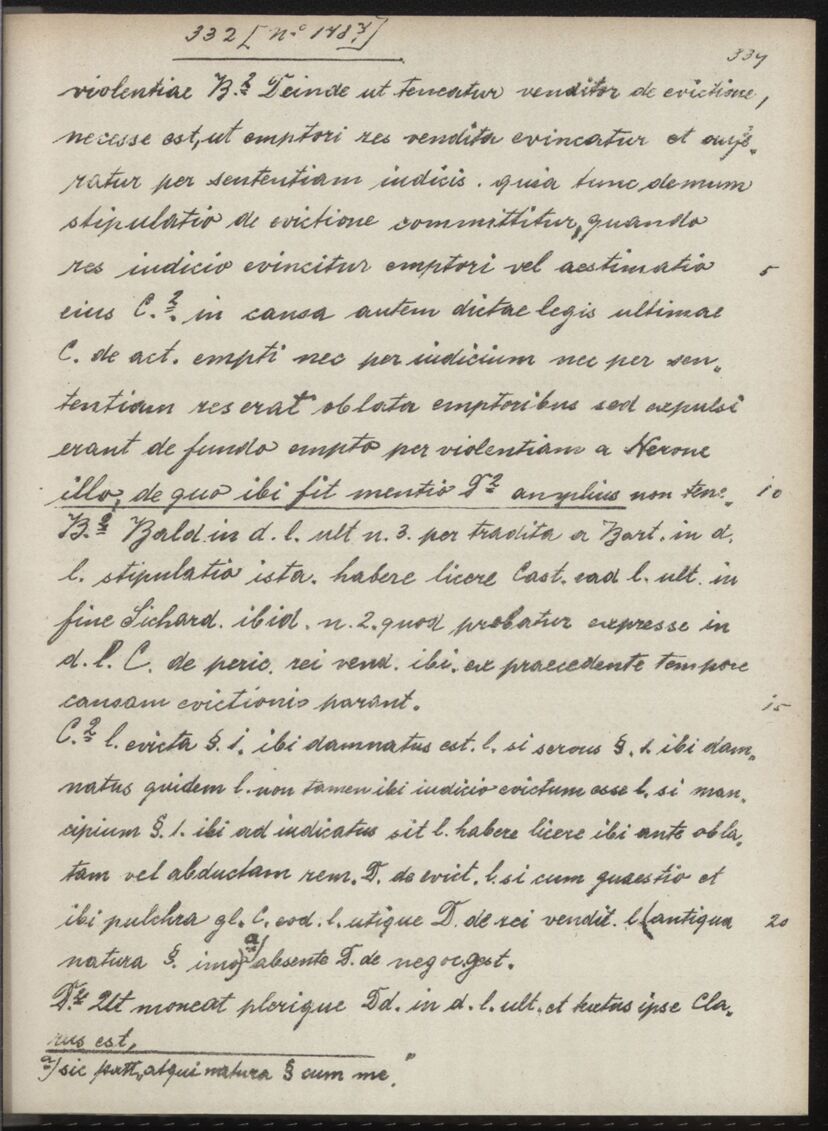 332 [ n.º 1487]
339
violentiae B.2 Deinde ut teneatur venditor de evictione,
necesse est, ut emptori res vendita evincatur et aufe„
ratur per sententiam iudicis. quia tunc demum
stipulatio de evictione committitur, quando
res iudicio evincitur emptori vel aestimatio 5
eius C.2. in causa autem dictae legis ultimae
C. de act. empti nec per iudicium nec per sen„
tentiam res erat oblata emptoribus sed expulsi
erant de fundo empto per violentiam a Nerone
illo, de quo ibi fit mentio D2 amplius non tene„ 10
B.2 Bald in d. l. ult n. 3. per tradita a Bart. in d.
l. stipulatio ista. habere licere Cast. ead l. ult. in
fine Sichard. ibid. n. 2. quod probatur expresse in
d. l. C. de peric. rei vend. ibi. ex praecedente tempore
causam evictionis parant. 15
C.2 l. evicta §. 1. ibi damnatus est. l. si servus §. 1. ibi dam„
natus quidem l. non tamen ibi iudicio evictum esse l. si man„
cipium §. 1. ibi adiudicatus sit l. habere licere ibi ante obla„
tam vel abductam rem. D. de evict. l. si cum quaestio et
ibi pulchra gl. C. eod. l. utique D. de rei vendit. l (antiqua 20
natura §. imo) a) absente D. de negoc. gest.
D.2 Ut moneat plerique Dd. in d. l. ult. et ipse Cla„
rus est,
a) sic atqui natura § cum me."